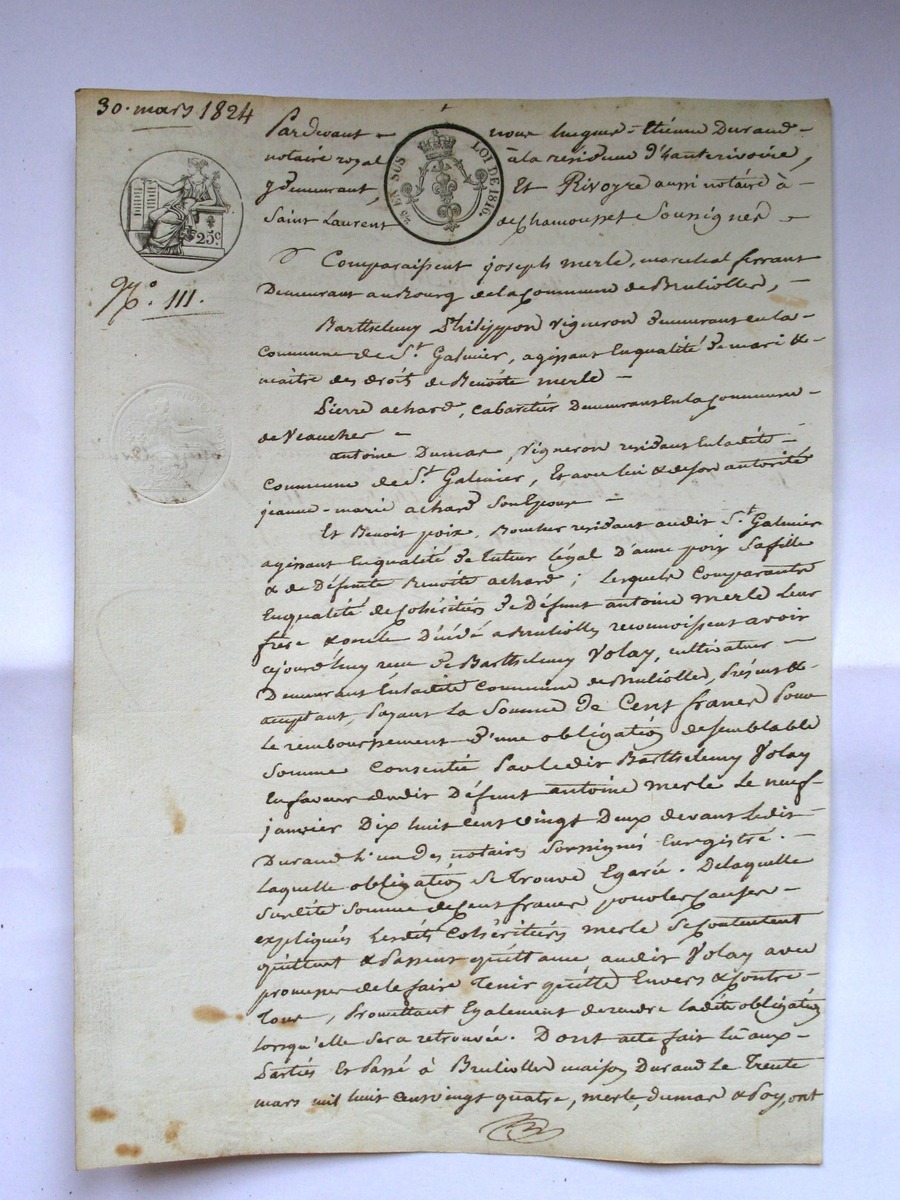 30. mars 1824
Pardevant nous hugue-Etienne Durand
notaire royal à la residence d'hauterivoire,
y demeurant, Et Rivoyre aussi notaire à
Saint Laurent de Chamousset Soussignés
25 EN SUS
LOI DE 1816.
25c.
No. 111.
Comparaissent joseph merle, marechal ferrant
Demeurant au Bourg de la Commune de Brulioles,
Barthelemy Philippon vigneron demeurant en la
Commune de St. Galmier, agissant En qualité de mari &
maitre des droits de Benoite merle
Pierre achard, cabaretier Demeurant En la Commune
de Veauches
antoine Dumas, vigneron residant En la dite
Commune de St. Galmier, Et avec lui & de son autorité
jeanne-marie achard Son Epouse
Et Benoit poix, Boucher residant audit St. Galmier
agissant En qualité de tuteur légal d'anne poix Sa fille
& de Défunte Benoite achard; Lesquels Comparants
En qualité de Cohéritiers de Défunt antoine merle Leur
frere & oncle Décédé a Brulioles reconnoissent avoir
aujourd'huy recu de Barthelemy Volay, cultivateur
Demeurant En la dite Commune de Brulioles, Présent &
acceptant, Payant La Somme de Cent francs Pour
Le remboursement d'une obligation de semblable
Somme Consentie Par ledit Barthelemy Volay
En faveur dudit Défunt antoine merle Le neuf
janvier Dix huit Cent vingt Deux devant Ledit
Durand L'un des notaires Soussignés Enregistré.
Laquelle obligation Se trouve Egarée. De laquelle
Susdite Somme de Cent francs pour les Causes
expliqués Lesdits Cohéritiers merle Se Contentent
quittent & Passent quittance audit Volay avec
promesse de le faire Tenir quitte Envers & Contre
Tous, Promettant Egalement de rendre la dite obligation
lorsqu'elle Sera retrouvée. Dont acte fait Lû aux
Parties Et Passé à Brulioles maison Durand Le Trente
mars mil huit Cent vingt quatre, merle, dumas & Poy, ont